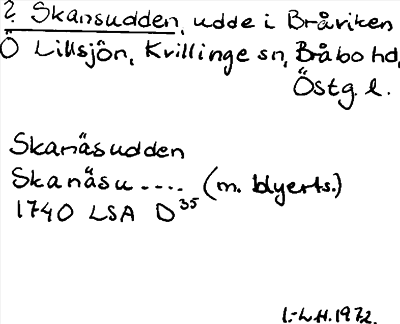 ? Skansudden, udde i Bråviken
Ö Lillsjön, Kvillinge sn, Bråbo hd,
Östg. l.
Skanäsudden
Skanäsu.... (m. blyerts.)
1740 LSA D35
I.-L.H. 1972.